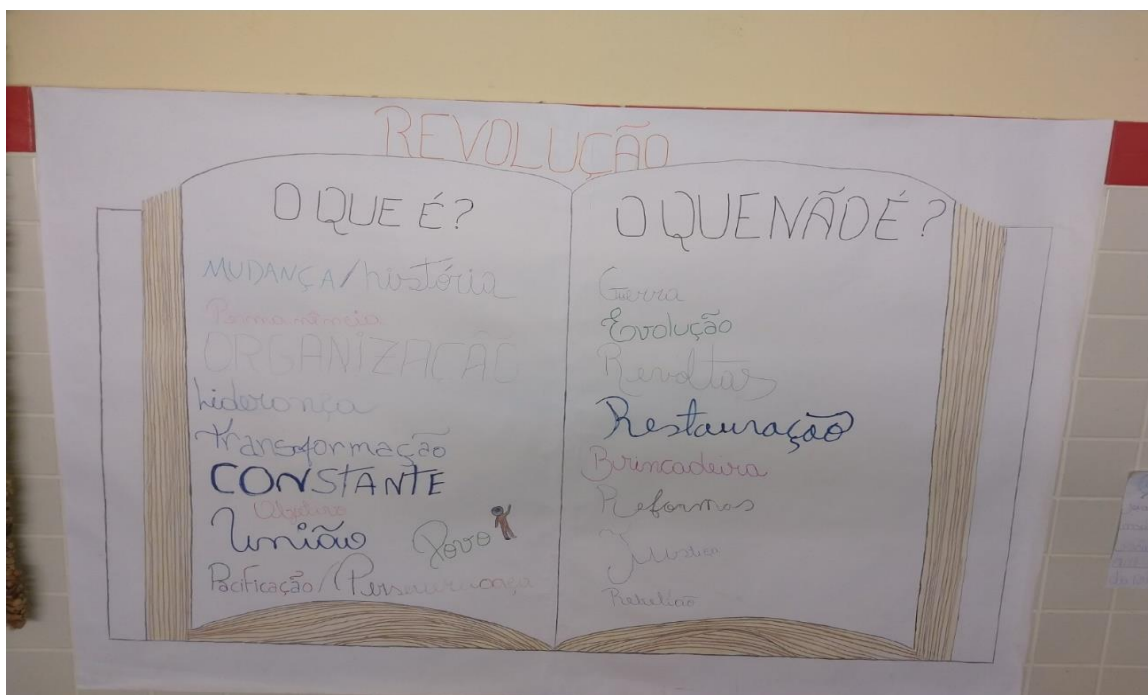 REVOLUÇÃO
O QUE É?
MUDANÇA/história
ORGANIZAÇÃO
Liderança
transformação
CONSTANTE
Objetivo
União Povo
Pacificação/
O QUE NÃO É?
Guerra
Evolução
Revoltas
Restauração
Brincadeira
Reformas
Rebelião